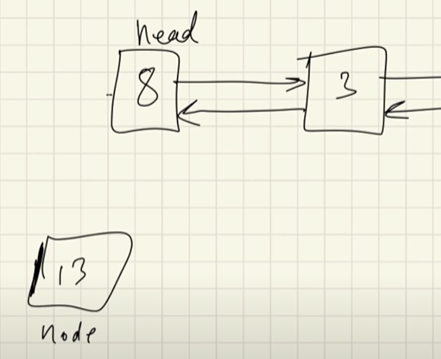 head
8 3
13
node